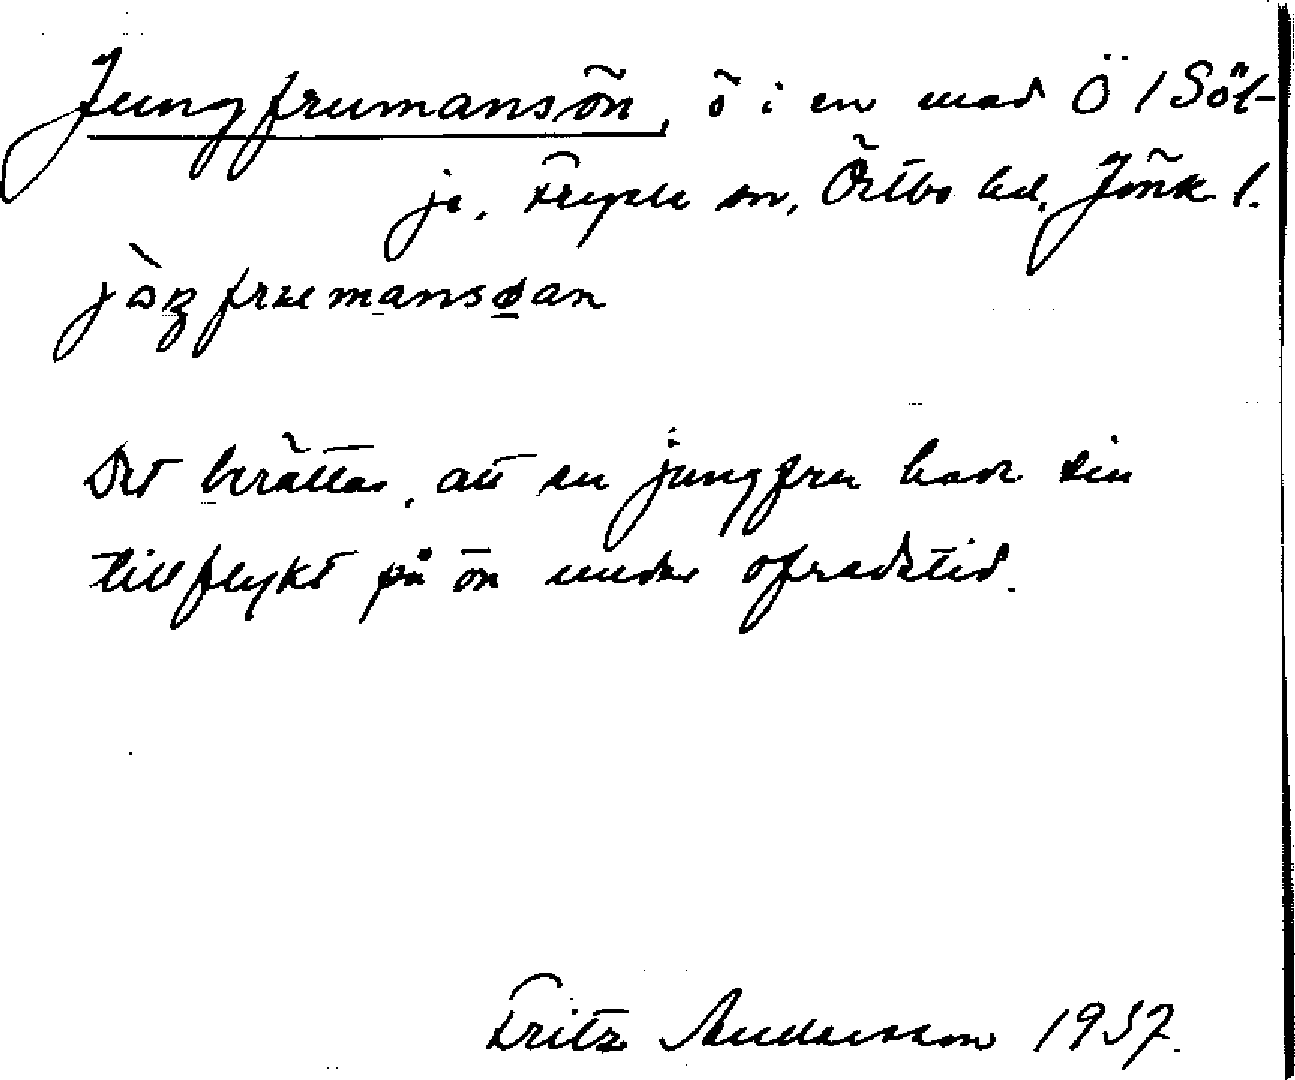 Jungfrumansön, ö i en mad Ö / Söl-
ja, Fryele sn, Östbo hd, Jönk l.
jòŋfrumansøan
Det berättas, att en jungfru hade sin
tillflykt på ön under ofredstid.
Fritz Andersson 1937.